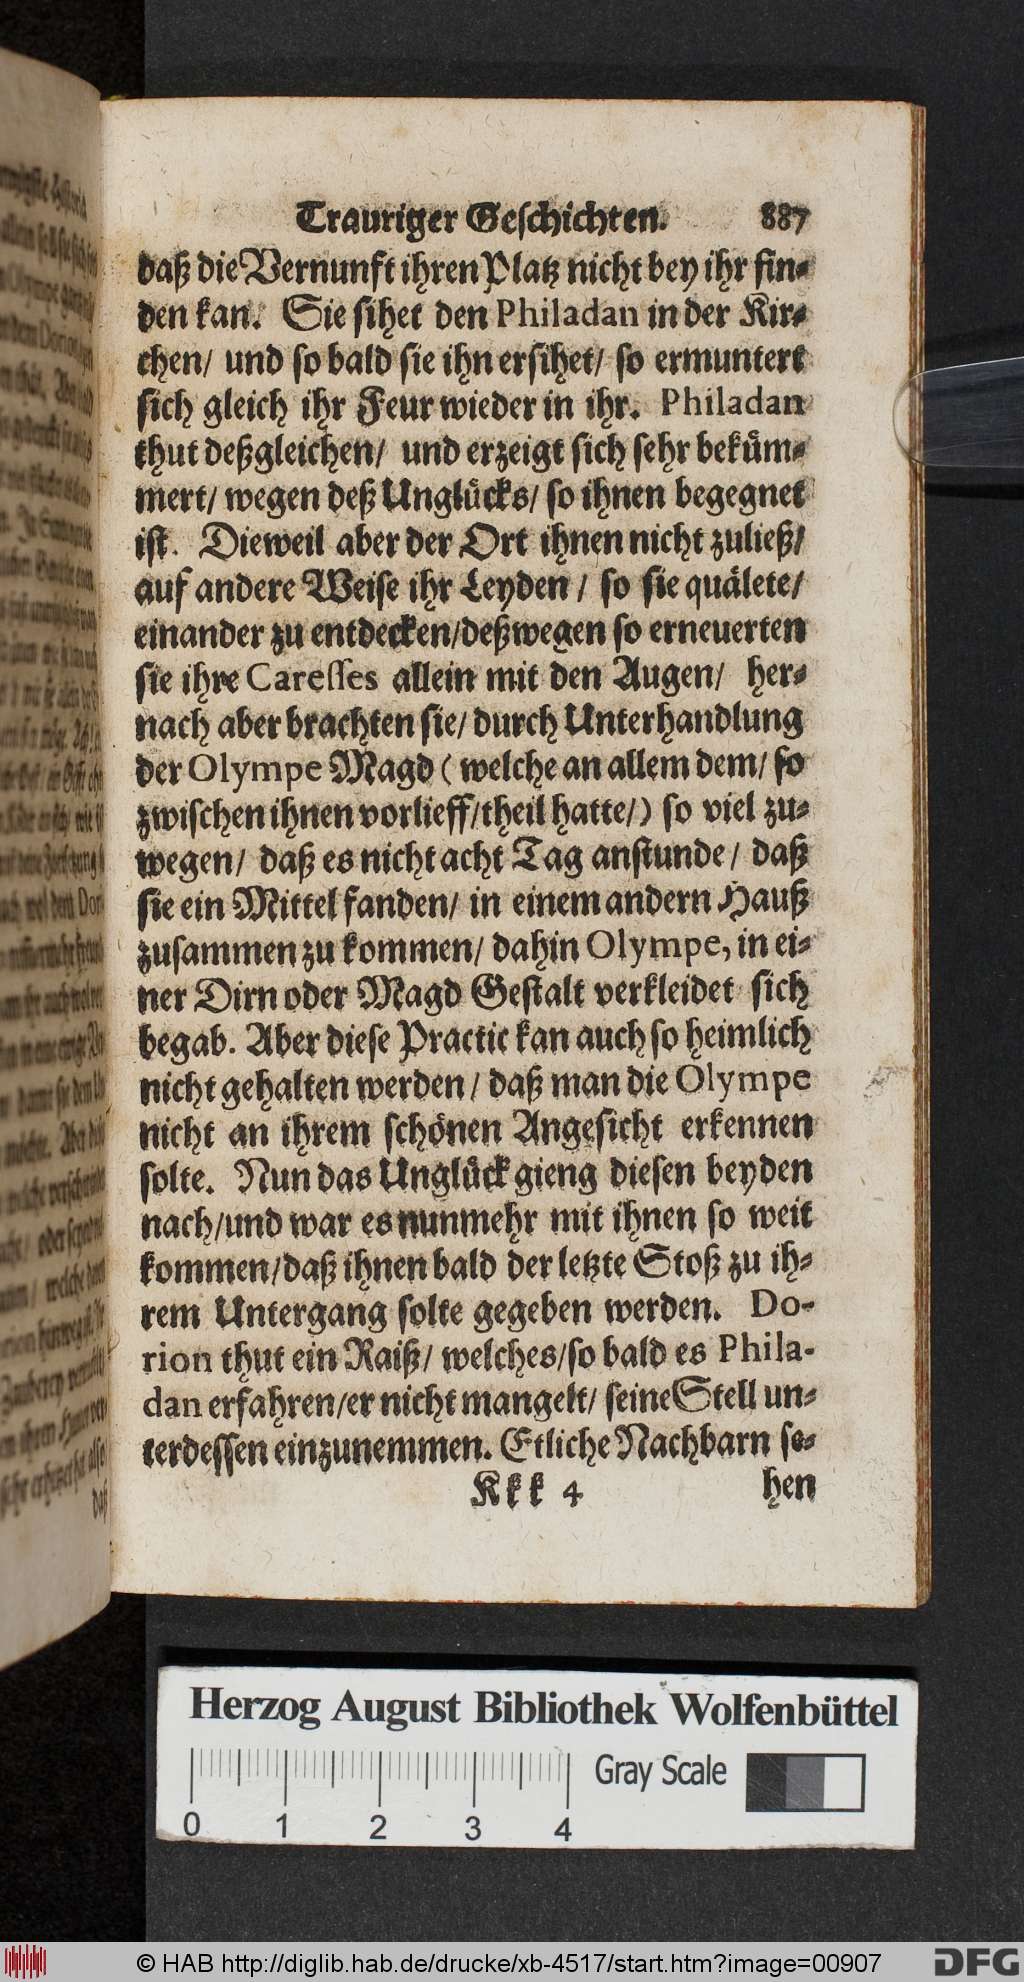 Trauriger Geſchichten. 887
daß die Vernunft ihren Platz nicht bey ihr fin-
den kan. Sie ſihet den Philadan in der Kir-
chen/ und ſo bald ſie ihn erſihet/ ſo ermuntert
ſich gleich ihr Feur wieder in ihr. Philadan
thut deßgleichen/ und erzeigt ſich ſehr bekuͤm-
mert/ wegen deß Ungluͤcks/ ſo ihnen begegnet
iſt. Dieweil aber der Ort ihnen nicht zuließ/
auf andere Weiſe ihr Leyden / ſo ſie quaͤlete/
einander zu entdecken/deßwegen ſo erneuerten
ſie ihre Careſſes allein mit den Augen/ her-
nach aber brachten ſie/ durch Unterhandlung
der Olympe Magd ( welche an allem dem/ ſo
zwiſchen ihnen vorlieff/theil hatte/) ſo viel zu-
wegen/ daß es nicht acht Tag anſtunde / daß
ſie ein Mittel fanden/ in einem andern Hauß
zuſammen zu kommen/ dahin Olympe, in ei-
ner Dirn oder Magd Geſtalt verkleidet ſich
begab. Aber dieſe Practic kan auch ſo heimlich
nicht gehalten werden / daß man die Olympe
nicht an ihrem ſchoͤnen Angeſicht erkennen
ſolte. Nun das Ungluͤck gieng dieſen beyden
nach/und war es nunmehr mit ihnen ſo weit
kommen/daß ihnen bald der letzte Stoß zu ih-
rem Untergang ſolte gegeben werden. Do-
rion thut ein Raiß/ welches/ſo bald es Phila-
dan erfahren/er nicht mangelt/ ſeine Stell un-
terdeſſen einzunemmen. Etliche Nachbarn ſe-
Kkk 4 hen
Herzog August Bibliothek Wolfenbüttel
Gray Scale
0 1 2 3 4
© HAB http://diglib.hab.de/drucke/xb-4517/start.htm?image=00907
DFG